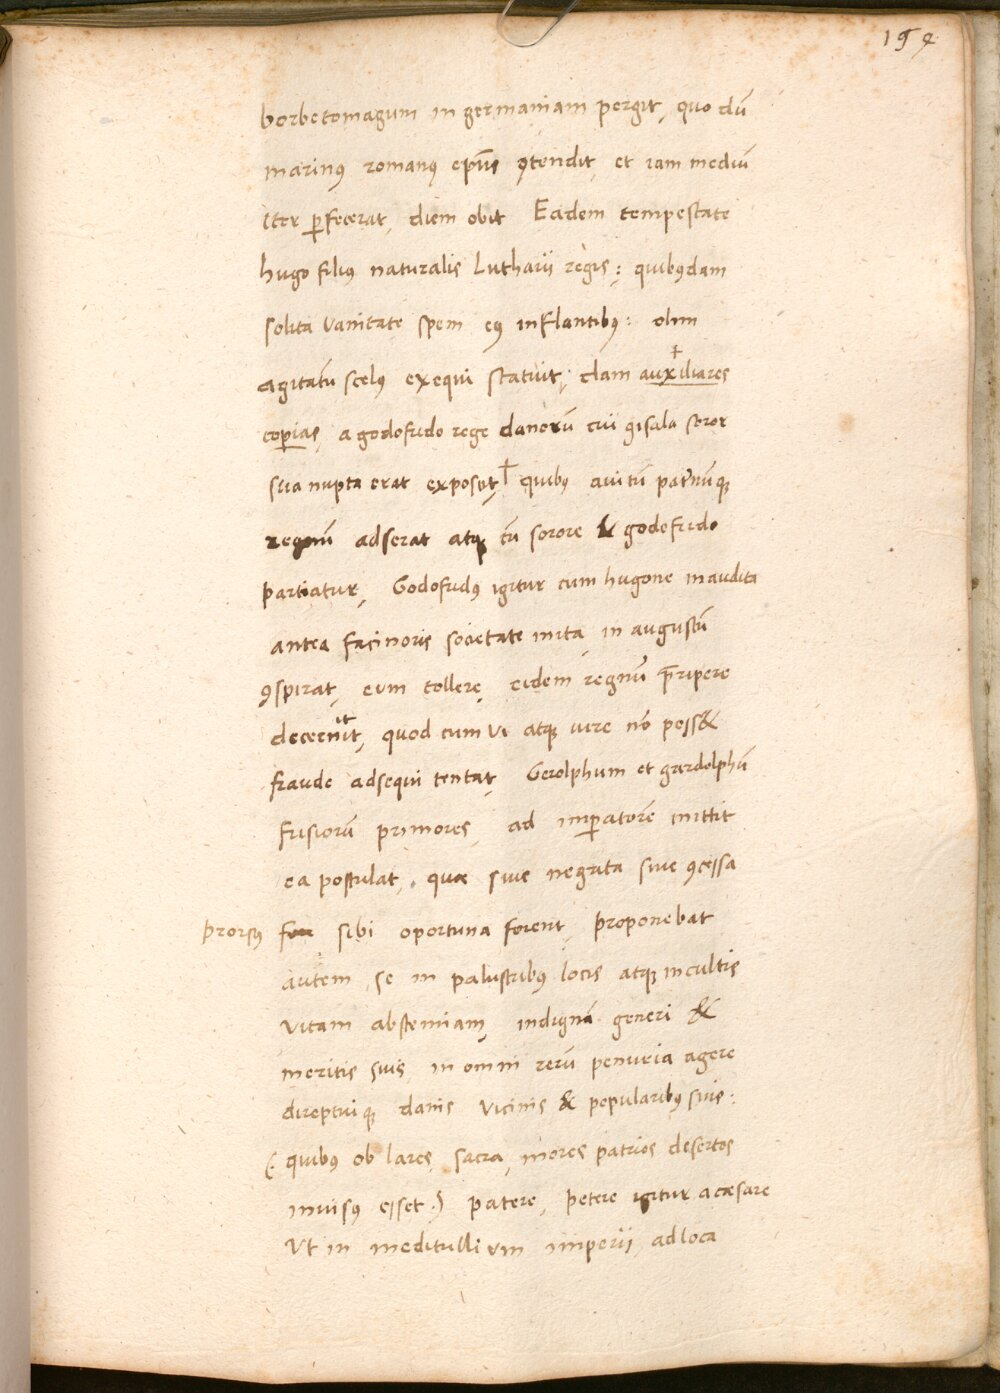 194
borbetomagum in germaniam pergit, quo dū
marinꝰ romanꝰ ep̄us ꝯtendit, et iam mediū
iter ꝑfecerat, diem obit Eadem tempestate
hugo filiꝰ naturalis Lutharii regis: quibꝰdam
solita vanitate spem eꝰ inflantibꝰ: olim
agitatū scelꝰ exequi statuit, clam auxiliares
copias, a godofrido rege danorū cui gisala soror
sua nupta erat exposcit† quibꝰ avitū patr̄nūqꝫ
regnū adserat atqꝫ cū sorore & godofrido
partiatur, Godofridꝰ igitur cum hugone inaudita
antea facinoris societate inita, in augustū
ꝯspirat, eum tollere, eidem regnū p̄ripere
decernit, quod cum vi atqꝫ iure nō poss&
fraude adsequi tentat, Gerolphum et gardolphū
frisiorū primores, ad imꝑatorē mittit
ea postulat, quæ sive negata sive ꝯcessa
prorsꝰ sibi oportuna forent, proponebat
autem, se in palustribꝰ locis atqꝫ incultis
vitam abstemiam, indignā generi &
meritis suis, in omni rerū penuria agere
direptuiqꝫ danis vicinis & popularibꝰ suis:
(quibꝰ ob lares, sacra, mores patrios desertos
invisꝰ esset.) patere, petere igitur a cæsare
Ut in meditullium imperii, ad loca